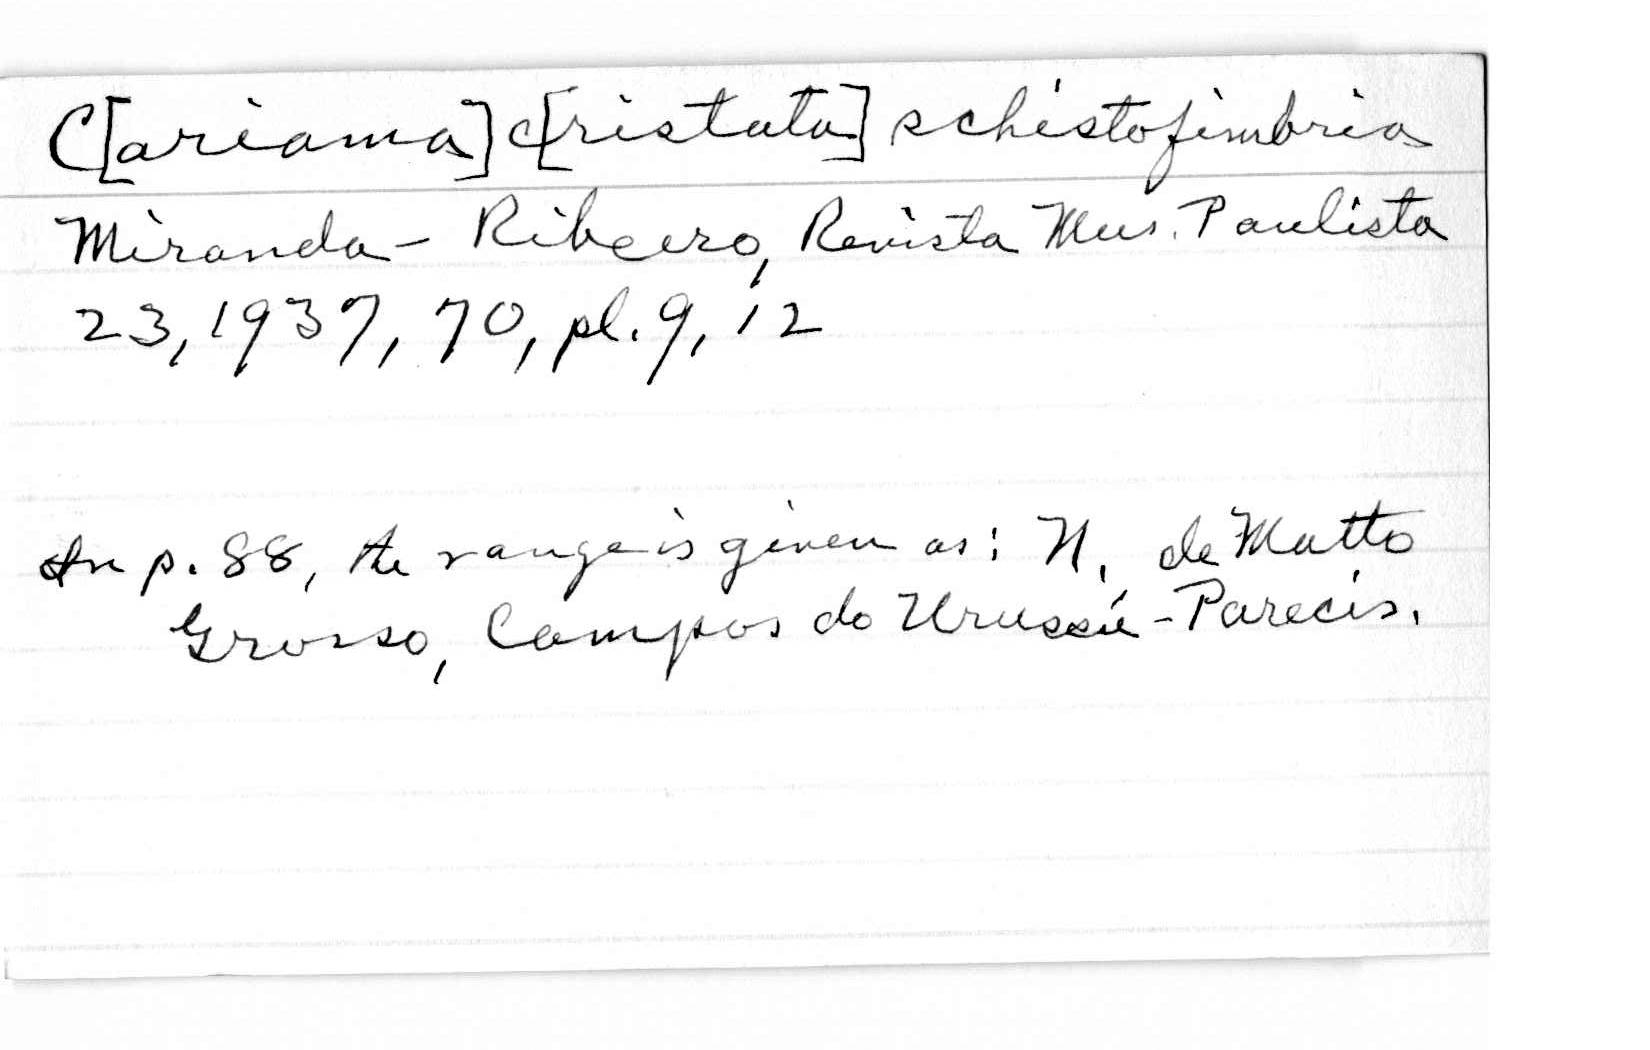 C[ariama] c[ristata] schistofimbria
Miranda-Ribeiro, Revista Mus. Paulista
23, 1937, 70, pl. 9, 12
In p. 88, the range is given as: N. de Matto
Grosso, Campos do Urussú-Parecis.